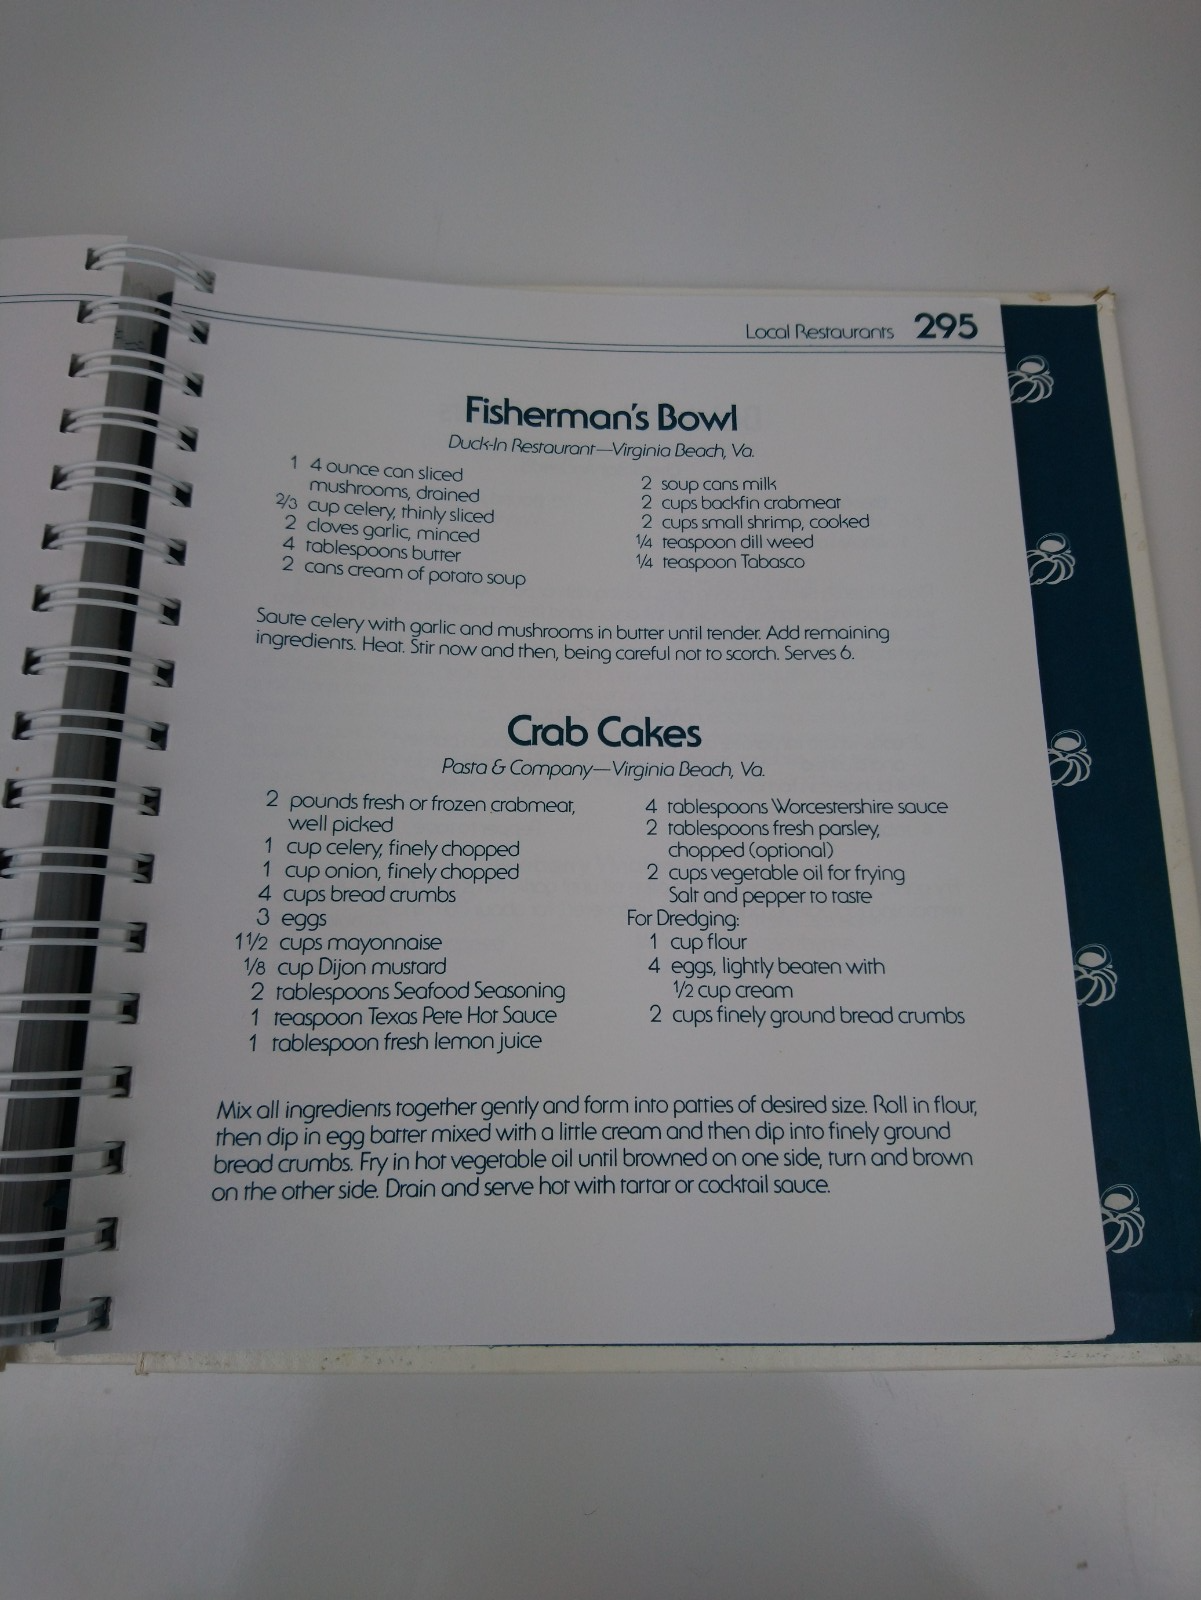 Local Restaurants 295
Fisherman's Bowl
Duck-In Restaurant—Virginia Beach, Va.
1 4 ounce can sliced
mushrooms, drained
2/3 cup celery, thinly sliced
2 cloves garlic, minced
4 tablespoons butter
2 cans cream of potato soup
2 soup cans milk
2 cups backfin crabmeat
2 cups small shrimp, cooked
1/4 teaspoon dill weed
1/4 teaspoon Tabasco
Saute celery with garlic and mushrooms in butter until tender. Add remaining
ingredients. Heat. Stir now and then, being careful not to scorch. Serves 6.
Crab Cakes
Pasta & Company—Virginia Beach, Va.
2 pounds fresh or frozen crabmeat,
well picked
1 cup celery, finely chopped
1 cup onion, finely chopped
4 cups bread crumbs
3 eggs
1 1/2 cups mayonnaise
1/8 cup Dijon mustard
2 tablespoons Seafood Seasoning
1 teaspoon Texas Pete Hot Sauce
1 tablespoon fresh lemon juice
4 tablespoons Worcestershire sauce
2 tablespoons fresh parsley,
chopped (optional)
2 cups vegetable oil for frying
Salt and pepper to taste
For Dredging:
1 cup flour
4 eggs, lightly beaten with
1/2 cup cream
2 cups finely ground bread crumbs
Mix all ingredients together gently and form into patties of desired size. Roll in flour,
then dip in egg batter mixed with a little cream and then dip into finely ground
bread crumbs. Fry in hot vegetable oil until browned on one side, turn and brown
on the other side. Drain and serve hot with tartar or cocktail sauce.